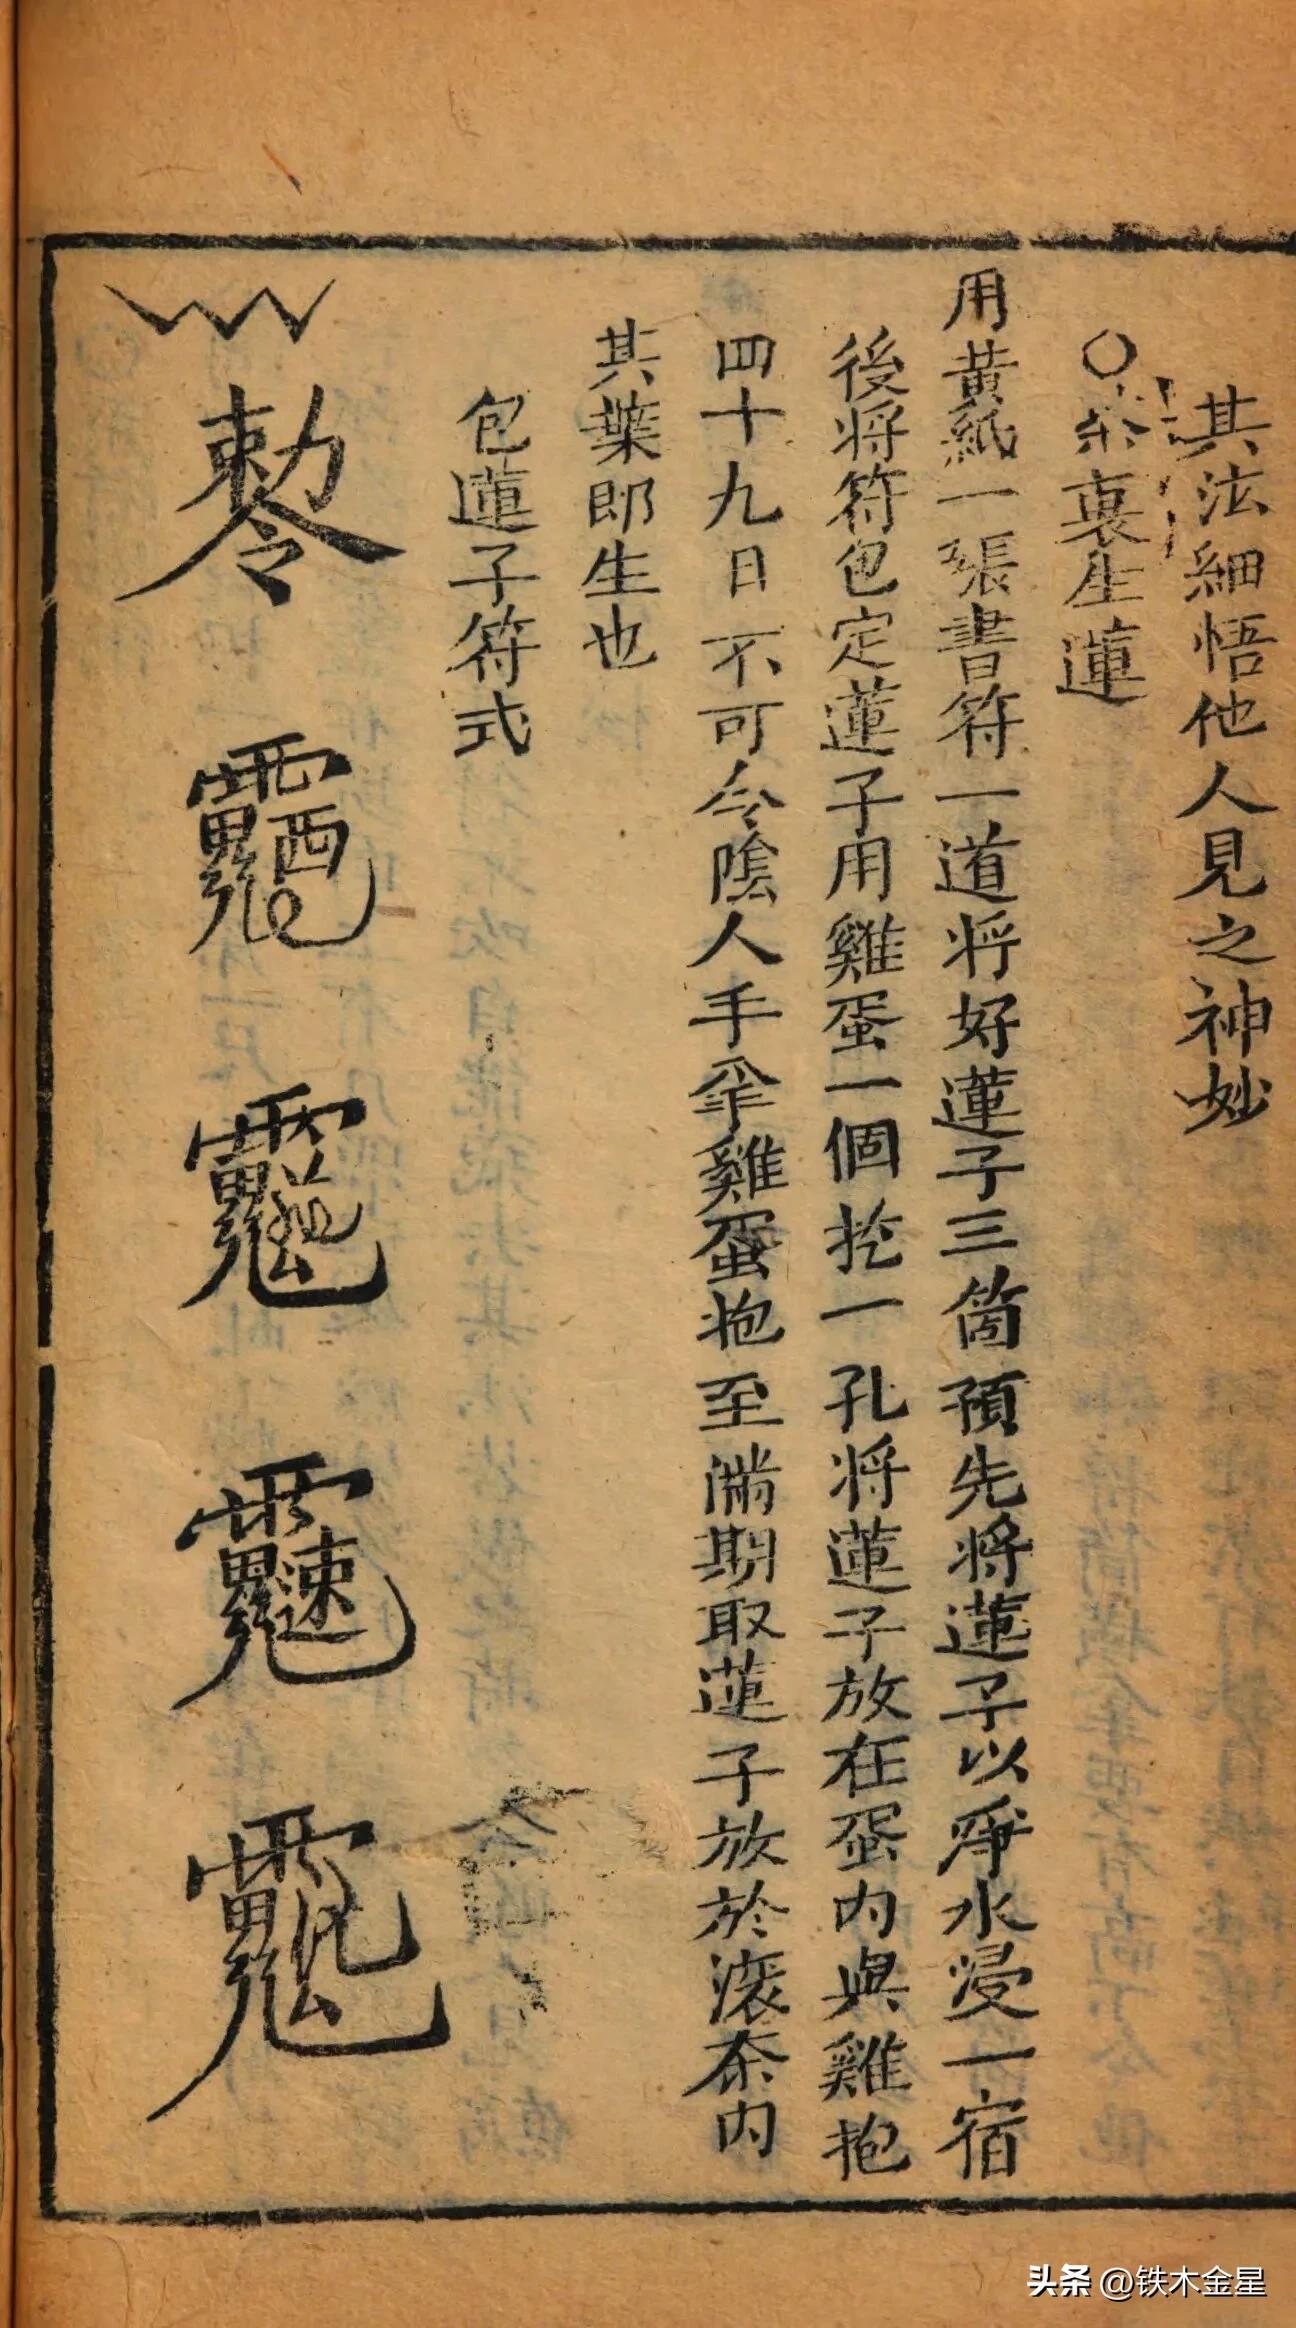 其法細悟他人見之神妙
○茶裏生蓮
用黃紙一張書符一道将好蓮子三箇預先將蓮子以淨水浸一宿
後将符包定蓮子用雞蛋一個挖一孔將蓮子放在蛋内與雞抱
四十九日不可令陰人手拿雞蛋抱至滿期取蓮子放於滚茶内
其葉即生也
包蓮子符式
勅令
头条 @铁木金星